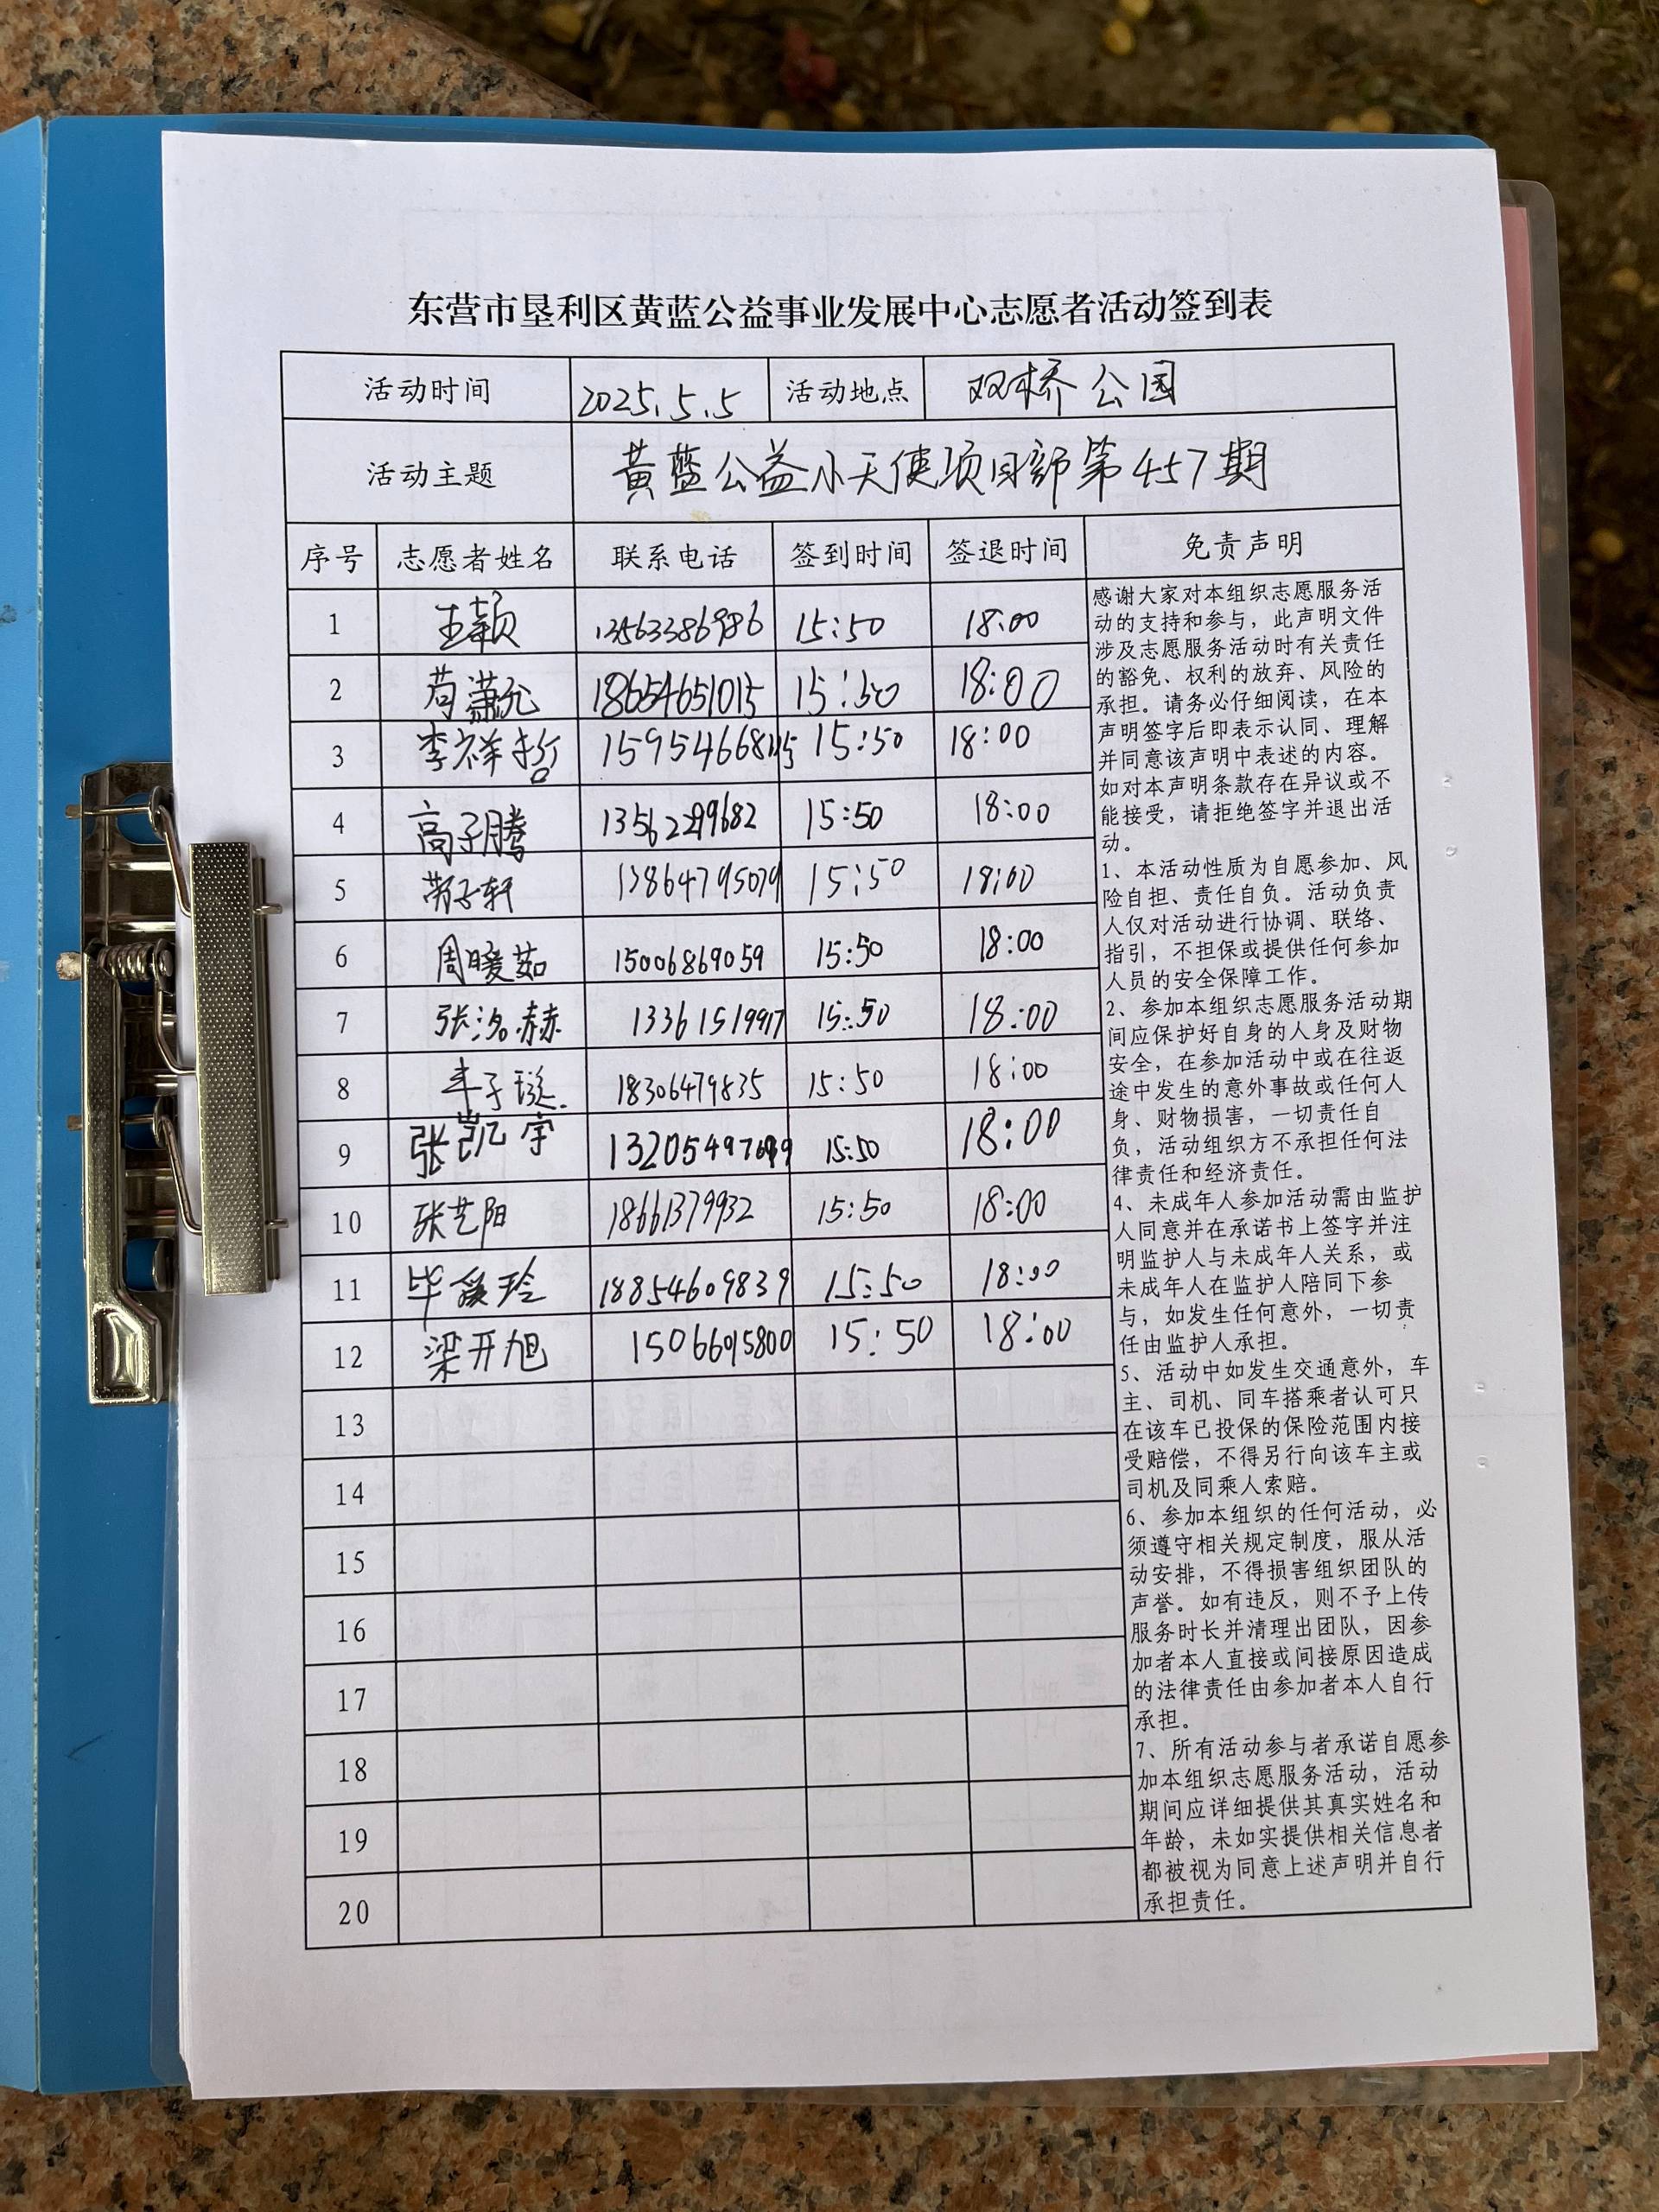 东营市垦利区黄蓝公益事业发展中心志愿者活动签到表
活动时间 2025.5.5 活动地点 双桥公园
活动主题 黄蓝公益小天使项目部第457期
序号 志愿者姓名 联系电话 签到时间 签退时间 免责声明
1 王颖 13563386986 15:50 18:00
2 苟潇允 18654651015 15:50 18:00
3 李祥哲 15:50 18:00
4 高子腾 15:50 18:00
5 子轩 13864795079 15:50 18:00
6 周暖茹 15006869059 15:50 18:00
7 张洺赫 15:50 18:00
8 丰子璇 18306479835 15:50 18:00
9 张凯宇 15:50 18:00
10 张艺阳 18661379932 15:50 18:00
11 毕媛玲 18854609839 15:50 18:00
12 梁开旭 15066015800 15:50 18:00
13
14
15
16
17
18
19
20
感谢大家对本组织志愿服务活
动的支持和参与，此声明文件
涉及志愿服务活动时有关责任
的豁免、权利的放弃、风险的
承担。请务必仔细阅读，在本
声明签字后即表示认同、理解
并同意该声明中表述的内容。
如对本声明条款存在异议或不
能接受，请拒绝签字并退出活
动。
1、本活动性质为自愿参加、风
险自担、责任自负。活动负责
人仅对活动进行协调、联络、
指引，不担保或提供任何参加
人员的安全保障工作。
2、参加本组织志愿服务活动期
间应保护好自身的人身及财物
安全，在参加活动中或在往返
途中发生的意外事故或任何人
身、财物损害，一切责任自
负，活动组织方不承担任何法
律责任和经济责任。
4、未成年人参加活动需由监护
人同意并在承诺书上签字并注
明监护人与未成年人关系，或
未成年人在监护人陪同下参
与，如发生任何意外，一切责
任由监护人承担。
5、活动中如发生交通意外，车
主、司机、同车搭乘者认可只
在该车已投保的保险范围内接
受赔偿，不得另行向该车主或
司机及同乘人索赔。
6、参加本组织的任何活动，必
须遵守相关规定制度，服从活
动安排，不得损害组织团队的
声誉。如有违反，则不予上传
服务时长并清理出团队，因参
加者本人直接或间接原因造成
的法律责任由参加者本人自行
承担。
7、所有活动参与者承诺自愿参
加本组织志愿服务活动，活动
期间应详细提供其真实姓名和
年龄，未如实提供相关信息者
都被视为同意上述声明并自行
承担责任。